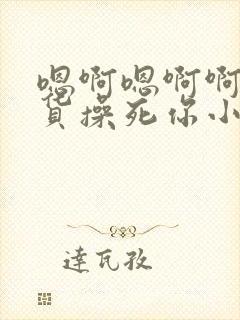 嗯啊嗯啊啊
操死你小
達瓦孜